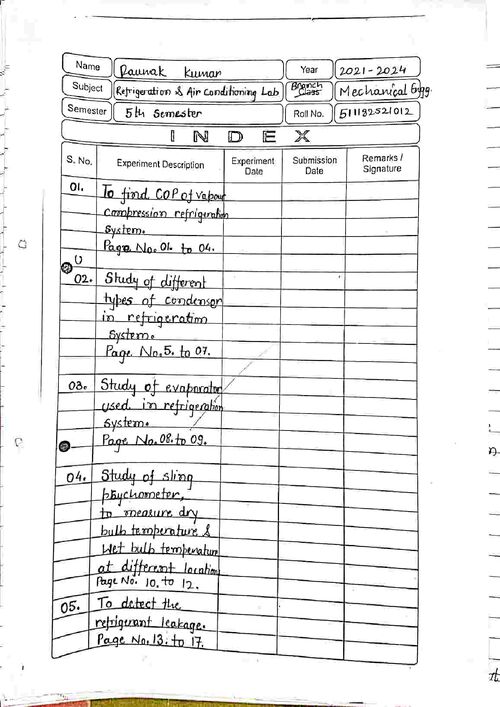 Name Raunak Kumar Year 2021-2024
Subject Refrigeration & Air Conditioning Lab Branch Class Mechanical Engg.
Semester 5th Semester Roll No. 511182521012
INDEX
S. No. Experiment Description Experiment Date Submission Date Remarks / Signature
01. To find COP of vapour
compression refrigeration
system.
Page No. 01. to 04.
02. Study of different
types of condenser
in refrigeration
system.
Page No. 5. to 07.
03. Study of evaporator
used in refrigeration
system.
Page No. 08. to 09.
04. Study of sling
psychometer,
to measure dry
bulb temperature &
Wet bulb temperature
at different location
Page No. 10. to 12.
05. To detect the
refrigerant leakage.
Page No. 13. to 17.